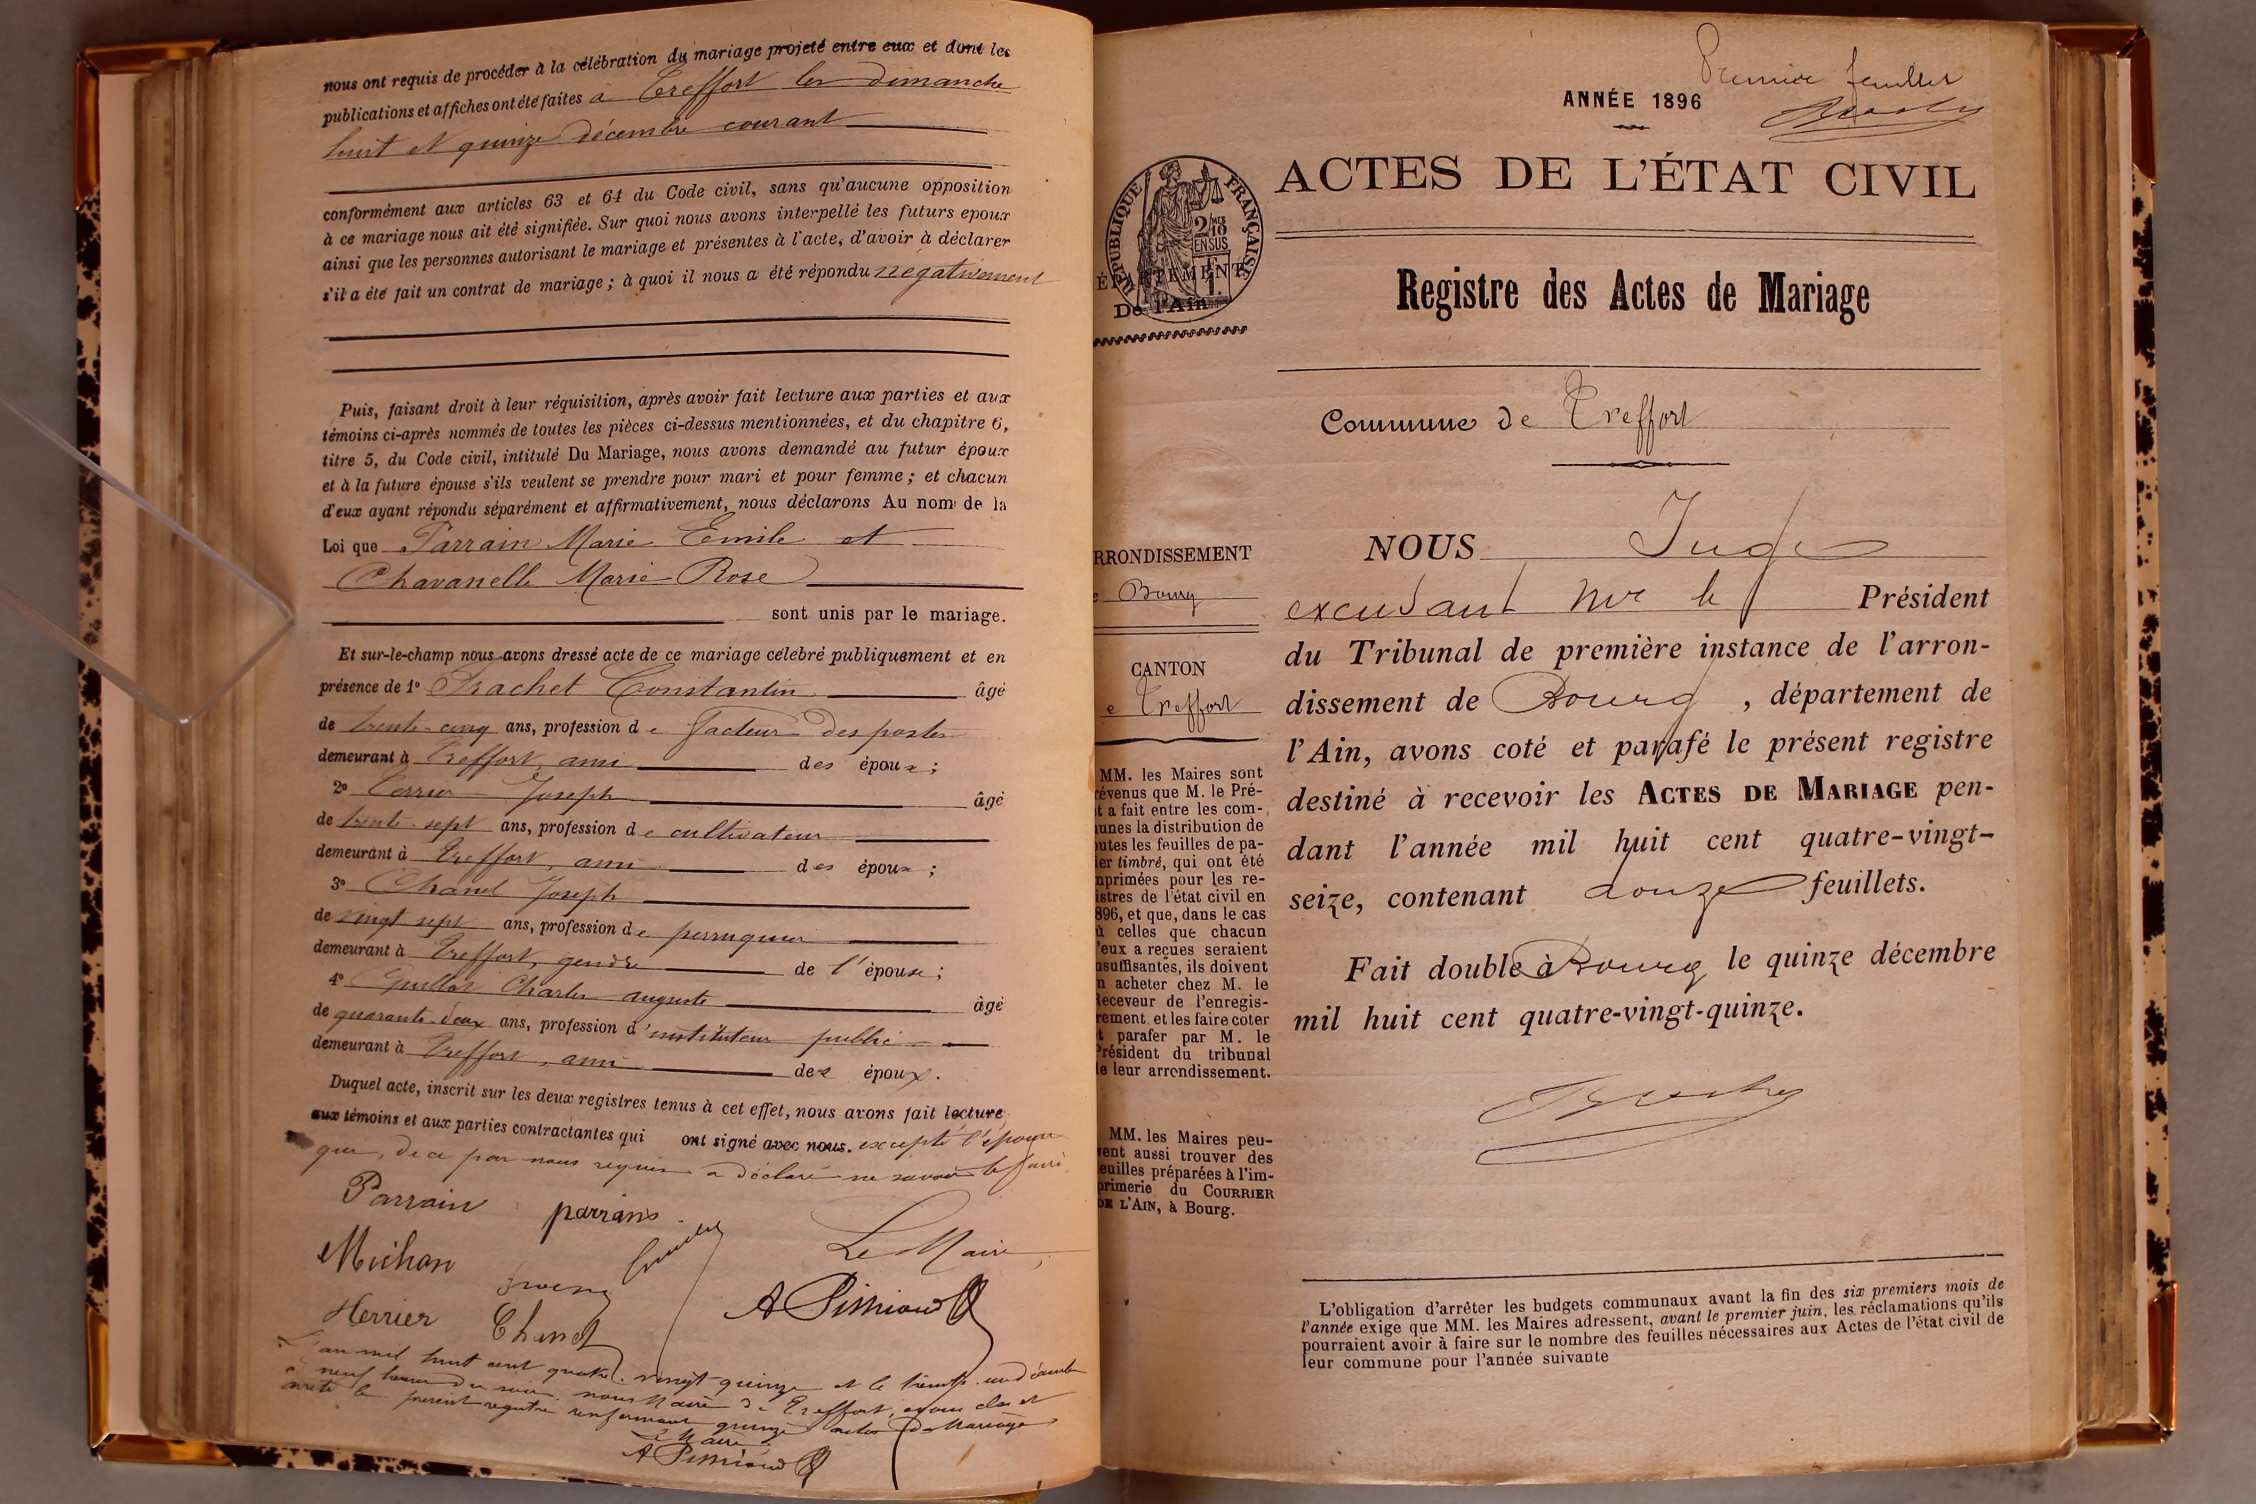 nous ont requis de procéder à la célébration du mariage projeté entre eux et dont les
publications et affiches ont été faites à Treffort les dimanche
huit et quinze décembre courant
conformément aux articles 63 et 64 du Code civil, sans qu'aucune opposition
à ce mariage nous ait été signifiée. Sur quoi nous avons interpellé les futurs epoux
ainsi que les personnes autorisant le mariage et présentes à l'acte, d'avoir à déclarer
s'il a été fait un contrat de mariage ; à quoi il nous a été répondu négativement
Puis, faisant droit à leur réquisition, après avoir fait lecture aux parties et aux
témoins ci-après nommés de toutes les pièces ci-dessus mentionnées, et du chapitre 6,
titre 5, du Code civil, intitulé Du Mariage, nous avons demandé au futur époux
et à la future épouse s'ils veulent se prendre pour mari et pour femme ; et chacun
d'eux ayant répondu séparément et affirmativement, nous déclarons Au nom de la
Loi que Parrain Marie Emile et
Chavanelle Marie Rose
sont unis par le mariage.
Et sur-le-champ nous avons dressé acte de ce mariage célebré publiquement et en
présence de 1° Constantin âgé
de trente-cinq ans, profession de facteur des postes
demeurant à Treffort, ami des époux ;
2° Joseph âgé
de trente-sept ans, profession de cultivateur
demeurant à Treffort, ami des époux ;
3° Joseph
de vingt sept ans, profession de perruquier
demeurant à Treffort, gendre de l'épouse ;
4° Charles auguste âgé
de quarante-deux ans, profession d'instituteur public
demeurant à Treffort, ami des époux.
Duquel acte, inscrit sur les deux registres tenus à cet effet, nous avons fait lecture
aux témoins et aux parties contractantes qui ont signé avec nous. excepté l'épouse
que, de ce par nous requise a déclaré ne savoir le faire.
Parrain parrain
Michon
Le Maire,
Herrier
L'an mil huit cent quatre-vingt-quinze et le trente-un décembre
à neuf heures du soir, nous Maire de Treffort, avons clos et
arrêté le présent registre renfermant quinze actes de Mariage
Le Maire
Premier feuillet
ANNÉE 1896
ACTES DE L'ÉTAT CIVIL
RÉPUBLIQUE FRANÇAISE
2/10 EN SUS
ÉPARTEMENT
De l'Ain
Registre des Actes de Mariage
Commune de Treffort
RRONDISSEMENT
e Bourg
CANTON
e Treffort
MM. les Maires sont
révenus que M. le Pré-
t a fait entre les com-
unes la distribution de
outes les feuilles de pa-
ier timbré, qui ont été
mprimées pour les re-
istres de l'état civil en
896, et que, dans le cas
ù celles que chacun
'eux a reçues seraient
nsuffisantes, ils doivent
n acheter chez M. le
Receveur de l'enregis-
rement et les faire coter
t parafer par M. le
Président du tribunal
e leur arrondissement.
MM. les Maires peu-
vent aussi trouver des
euilles préparées à l'im-
primerie du COURRIER
DE L'AIN, à Bourg.
NOUS Juge
Mr le Président
du Tribunal de première instance de l'arron-
dissement de Bourg, département de
l'Ain, avons coté et parafé le présent registre
destiné à recevoir les ACTES DE MARIAGE pen-
dant l'année mil huit cent quatre-vingt-
seize, contenant douze feuillets.
Fait double à Bourg le quinze décembre
mil huit cent quatre-vingt-quinze.
L'obligation d'arrêter les budgets communaux avant la fin des six premiers mois de
l'année exige que MM. les Maires adressent, avant le premier juin, les réclamations qu'ils
pourraient avoir à faire sur le nombre des feuilles nécessaires aux Actes de l'état civil de
leur commune pour l'année suivante